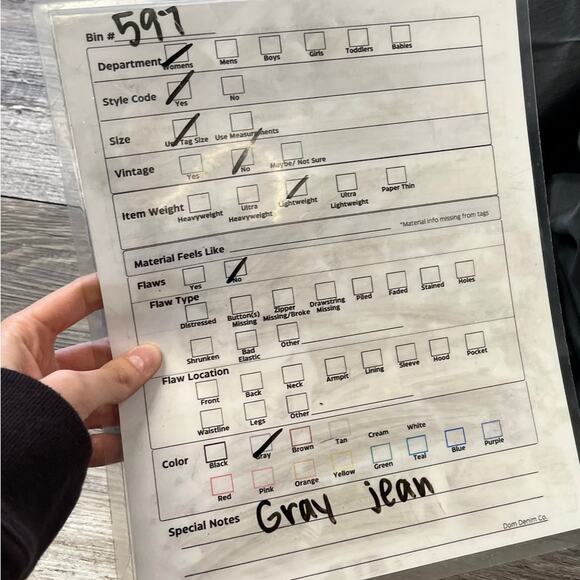 Bin # 597
Department Womens Mens Boys Girls Toddlers Babies
Style Code Yes No
Size Use Tag Size Use Measurements
Vintage Yes No Maybe/ Not Sure
Item Weight Heavyweight Ultra Heavyweight Lightweight Ultra Lightweight Paper Thin
*Material info missing from tags
Material Feels Like
Flaws Yes No
Flaw Type Distressed Button(s) Missing Zipper Missing/Broke Drawstring Missing Piled Faded Stained Holes
Shrunken Bad Elastic Other
Flaw Location Front Back Neck Armpit Lining Sleeve Hood Pocket
Waistline Legs Other
Color Black Gray Brown Tan Cream White
Red Pink Orange Yellow Green Teal Blue Purple
Special Notes Gray jean
Dom Denim Co.